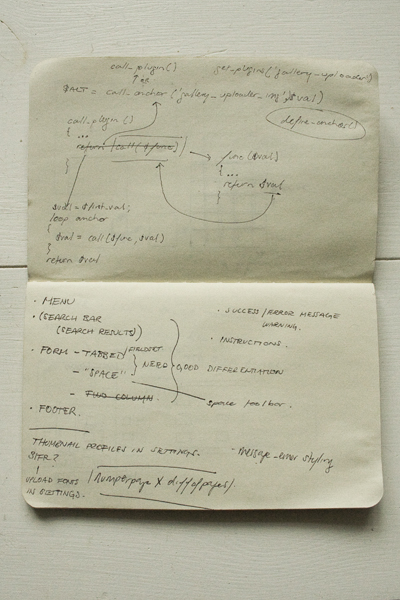 call_plugin()
get_plugins('gallery_uploader')
= call_anchor('gallery_uploader_img', $val)
define_anchors()
call_plugin()
{ ...
return call($func)
}
func($val)
{ ...
return $val
}
$val = $init_val;
loop anchor
{
$val = call($func, $val)
}
return $val
• MENU
• (SEARCH BAR
(SEARCH RESULTS)
• FORM - TABBED/FIELDSET
- "SPACE" } NEED GOOD DIFFERENTIATION
- FIND COLUMN.
• FOOTER.
• SUCCESS/ERROR MESSAGE
WARNING.
• INSTRUCTIONS.
space toolbar.
THUMBNAIL PROFILES IN SETTINGS.
SIFR?
UPLOAD FONTS
IN SETTINGS.
(numperpage X diffofpages).
message_error styling